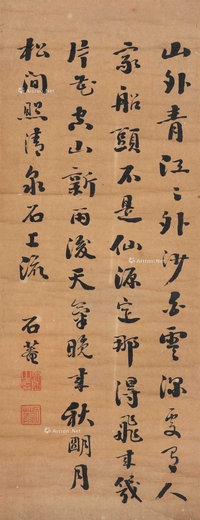 山外青江〻外沙白雲深處有人
家船頭不是仙源定那得飛來幾
片花空山新雨後天氣晚來秋明月
松間照清泉石上流
石菴